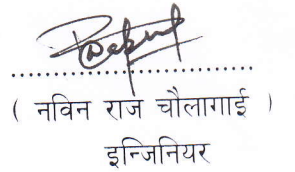 ( नविन राज चौलागाई )
इन्जिनियर